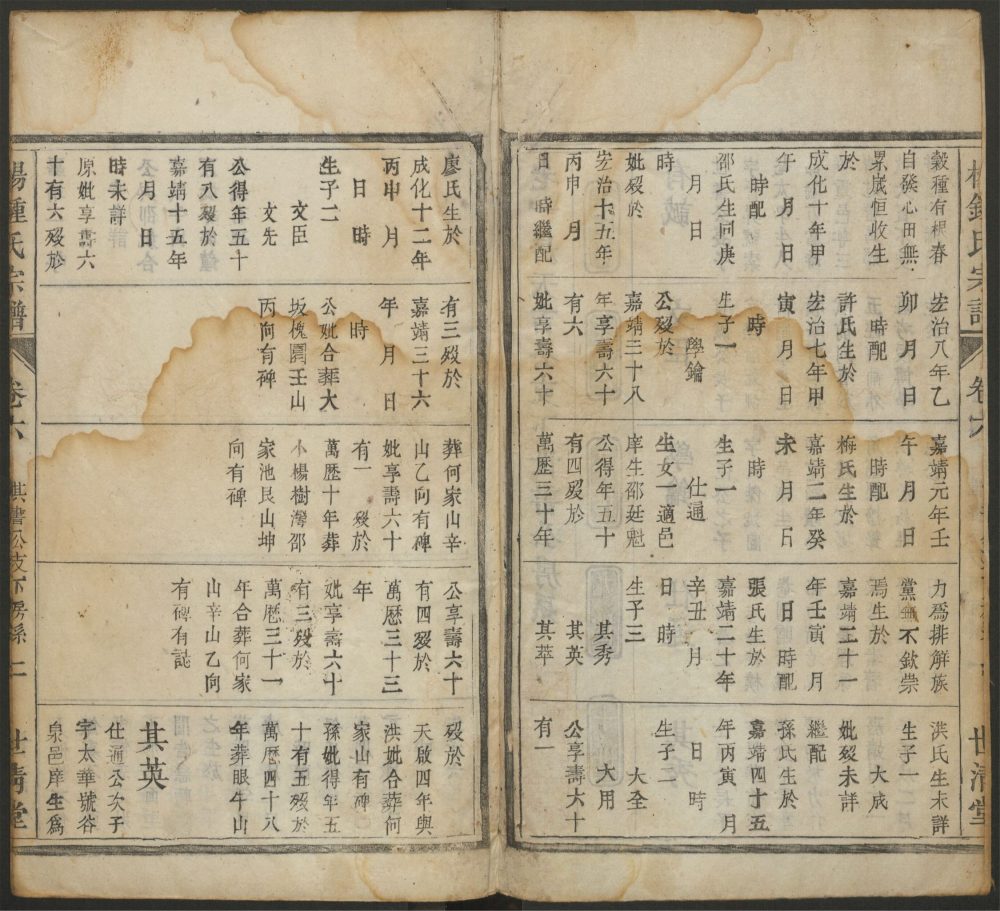 穀種有根春
自發心田無
累歲恒收生
於
成化十年甲
午 月 日
時配
邵氏生同庚
月 日
時
妣歿於
宏治十五年
丙申 月
日 時繼配
宏治八年乙
卯 月 日
時配
許氏生於
宏治七年甲
寅 月 日
時
生子一
學鑰
公歿於
嘉靖三十八
年享壽六十
有六
妣享壽六十
嘉靖元年壬
午 月 日
時配
梅氏生於
嘉靖二年癸
未 月 日
時
生子一
仕通
生女一適邑
庠生邵廷魁
公得年五十
有四歿於
萬歷三十年
力為排解族
黨無不欽崇
焉生於
嘉靖二十一
年壬寅 月
日 時配
張氏生於
嘉靖二十年
辛丑 月
日 時
生子三
其秀
其英
其萃
洪氏生未詳
生子一
大成
妣歿未詳
繼配
孫氏生於
嘉靖四十五
年丙寅 月
日 時
生子二
大全
大用
公享壽六十
有一
世清堂
廖氏生於
成化十二年
丙申 月
日 時
生子二
文臣
文先
公得年五十
有八歿於
嘉靖十五年
月 日
時未詳
原妣享壽六
十有六歿於
有三歿於
嘉靖三十六
年 月 日
時
公妣合葬大
坂傀園壬山
丙向有碑
葬何家山辛
山乙向有碑
妣享壽六十
有一 歿於
萬歷十年葬
小楊樹灣邵
家池艮山坤
向有碑
公享壽六十
有四歿於
萬歷三十三
年
妣享壽六十
有三歿於
萬歷三十一
年合葬何家
山辛山乙向
有碑有誌
歿於
天啟四年與
洪妣合葬何
家山有碑
孫妣得年五
十有五歿於
萬歷四十八
年葬眼牛山
其英
仕通公次子
字太華號谷
泉邑庠生為
楊鍾氏宗譜 卷六 公枝下房系 二 世清堂